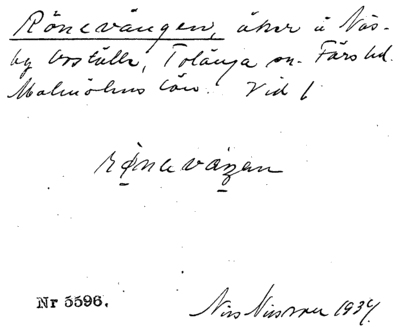 Rönevängen, åker å Näs-
by Boställe, Tolånga sn. Färs hd.
Malmöhus län. Vid 1
röneväŋen
Nr 5596. Nils Nilsson 1934.